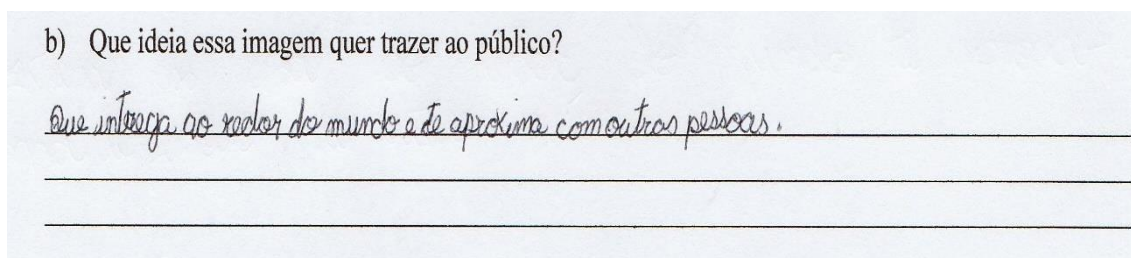 b) Que ideia essa imagem quer trazer ao público?
Que intrega ao redor do mundo e te aproxima com outras pessoas.